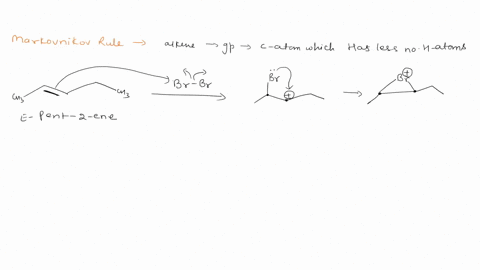 Markovnikov Rule → alkene → gp → C-atom which Has less no. H-atoms
CH₃ CH₃ Br-Br Br ⊕ Br ⊕
E- Pent-2-ene